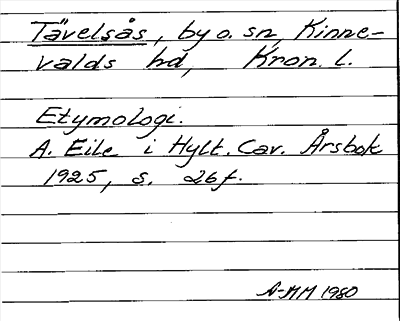 Tävelsås, by o. sn, Kinne-
valds hd, Kron. l.
Etymologi.
A. Eile i Hylt. Cav. Årsbok
1925, s. 26f.
A-MM 1980